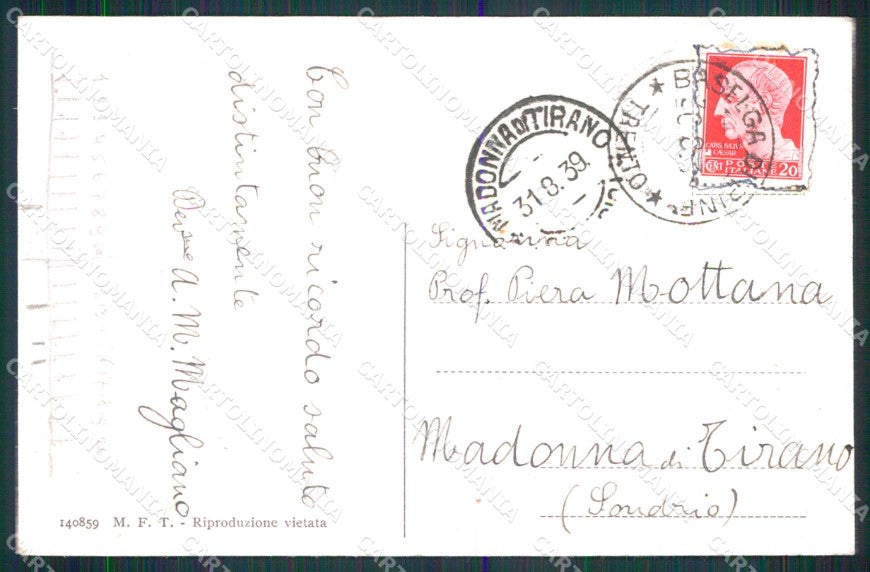 Con buon ricordo saluto
distintamente
Dev.ma A. M. Magliano
140859 M. F. T. - Riproduzione vietata
MADONNA DI TIRANO
31.8.39
BASELGA
TRENTO
CAIVS IVLIVS
CAESAR
CENT POSTE
ITALIANE 20
Signorina
Prof. Piera Mottana
Madonna di Tirano
(Sondrio)
CARTOLINOMANIA